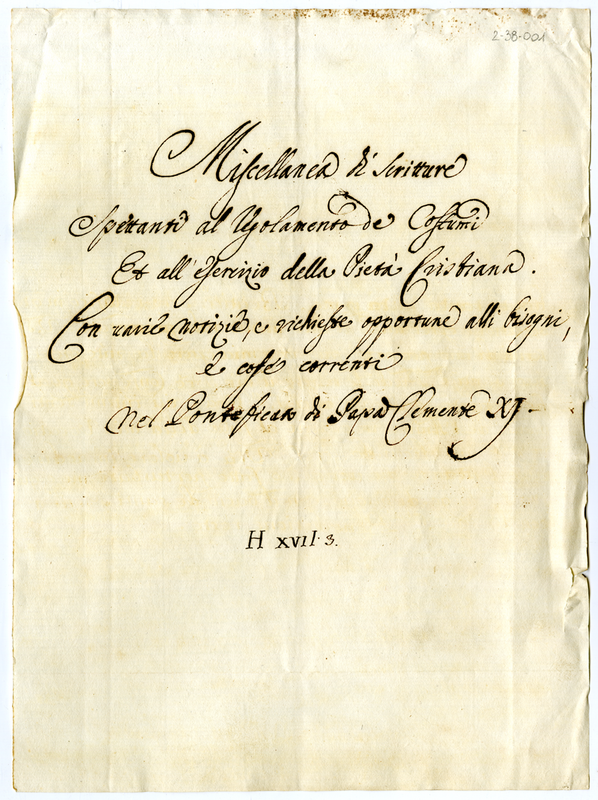 2-38-001
Miscellanea di scritture
Spettanti al Regolamento de Costumi
Et all'esercizio della Pietà Cristiana.
Con varie notizie, e richieste opportune alli bisogni,
e cose correnti
nel Pontificato di Papa Clemente XI
H XVII. 3.